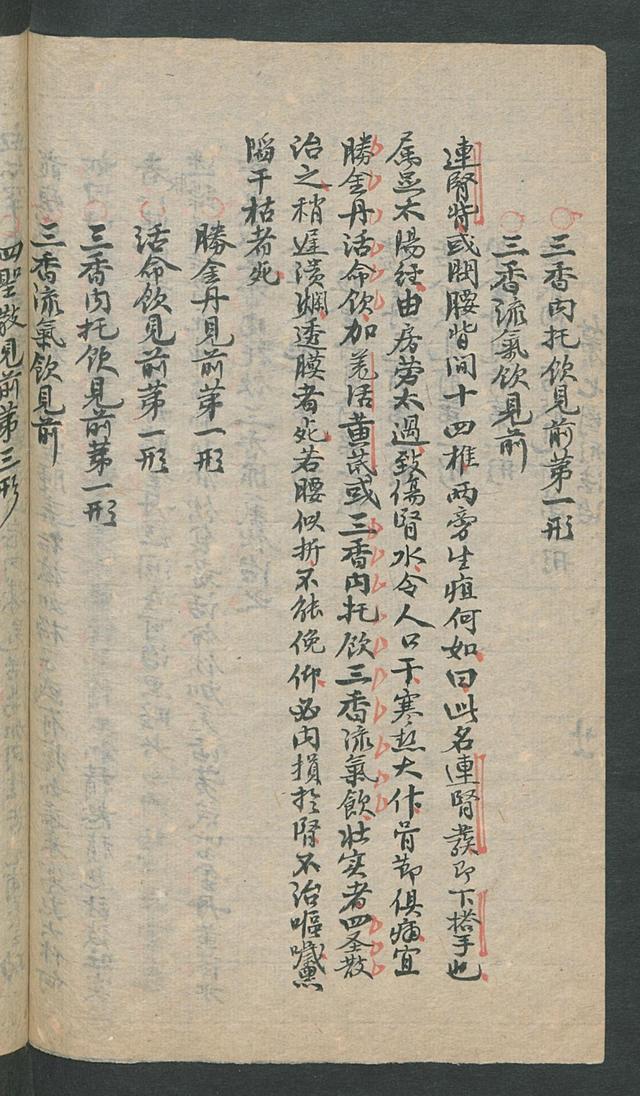 三香内托飲見前第一形
三香流氣飲見前
連腎發或問腰背間十四椎兩旁生疽何如曰此名連腎發即下搭手也
属足太陽経由房劳太過致傷腎水令人口干寒热大作骨節俱痛宜
勝金丹活命飲加羌活黄芪或三香内托飲三香流氣飲壮实者四圣散
治之稍遲潰爛透膜者死若腰似折不能俛仰必内損於腎不治嘔噦黑
陷干枯者死
勝金丹見前第一形
活命飲見前第一形
三香内托飲見前第一形
三香流氣飲見前
四聖散見前第三形